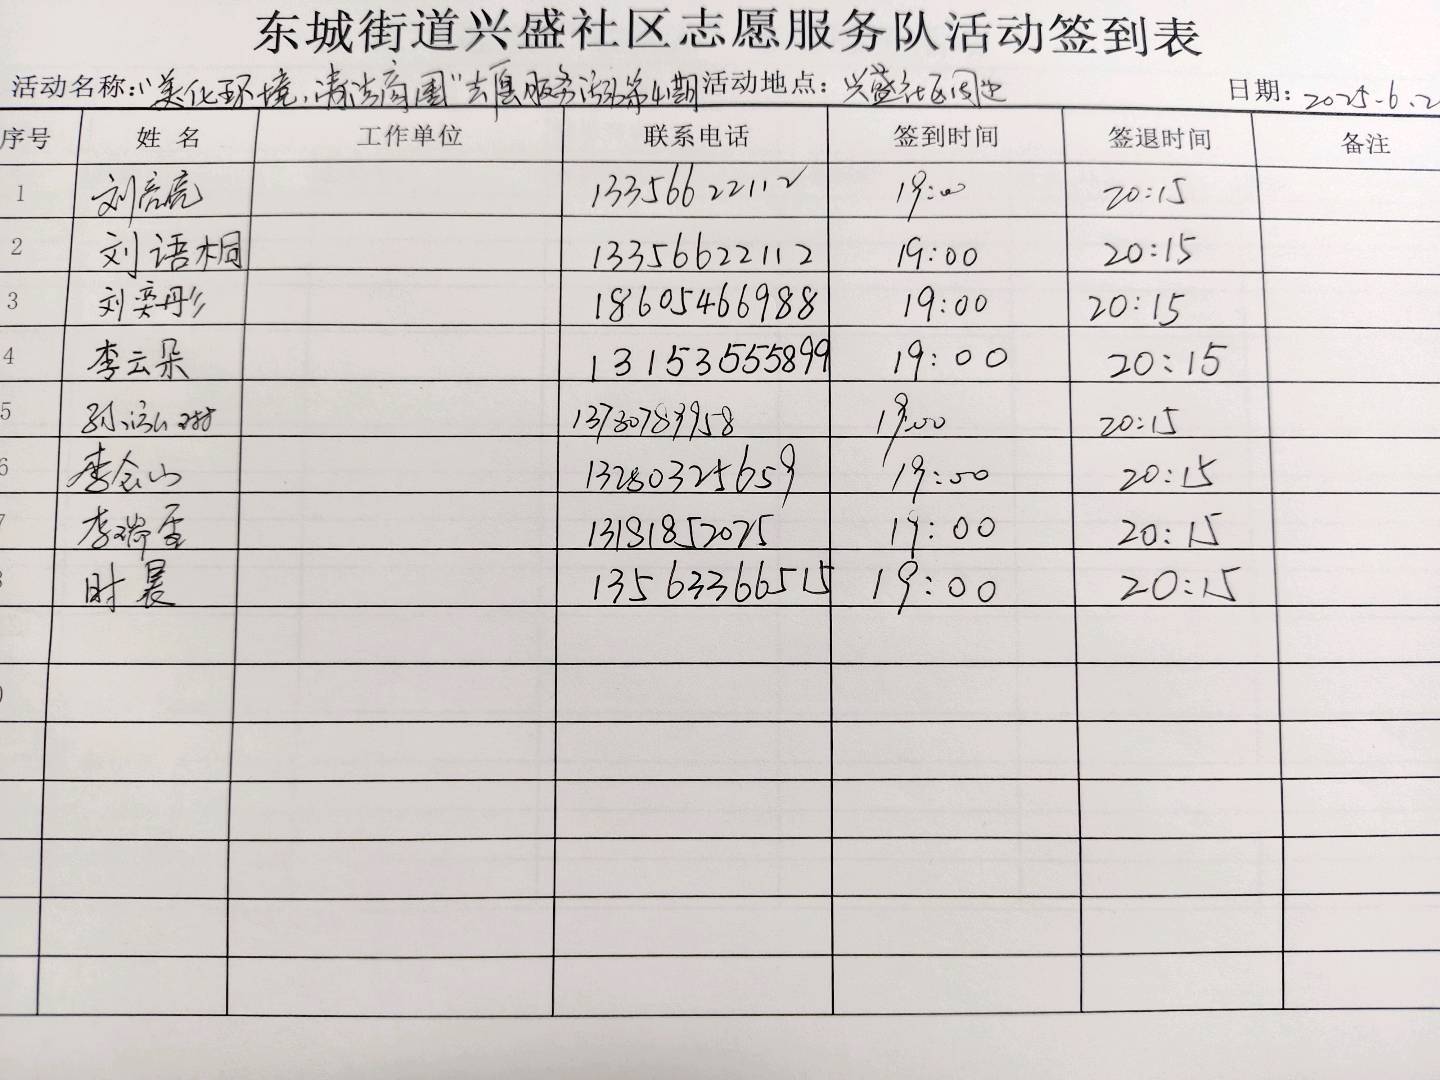 东城街道兴盛社区志愿服务队活动签到表
活动名称:"美化环境,清洁商圈"志愿服务活动第4期 活动地点: 兴盛社区周边 日期: 2025.6.2
序号 姓名 工作单位 联系电话 签到时间 签退时间 备注
1 刘亮亮 13356622112 19:00 20:15
2 刘语桐 13356622112 19:00 20:15
3 刘奕彤 18605466988 19:00 20:15
4 李云朵 13153555899 19:00 20:15
5 孙 19:00 20:15
6 李金山 13280325659 19:00 20:15
7 李瑞雪 13181852075 19:00 20:15
时晨 13563366515 19:00 20:15